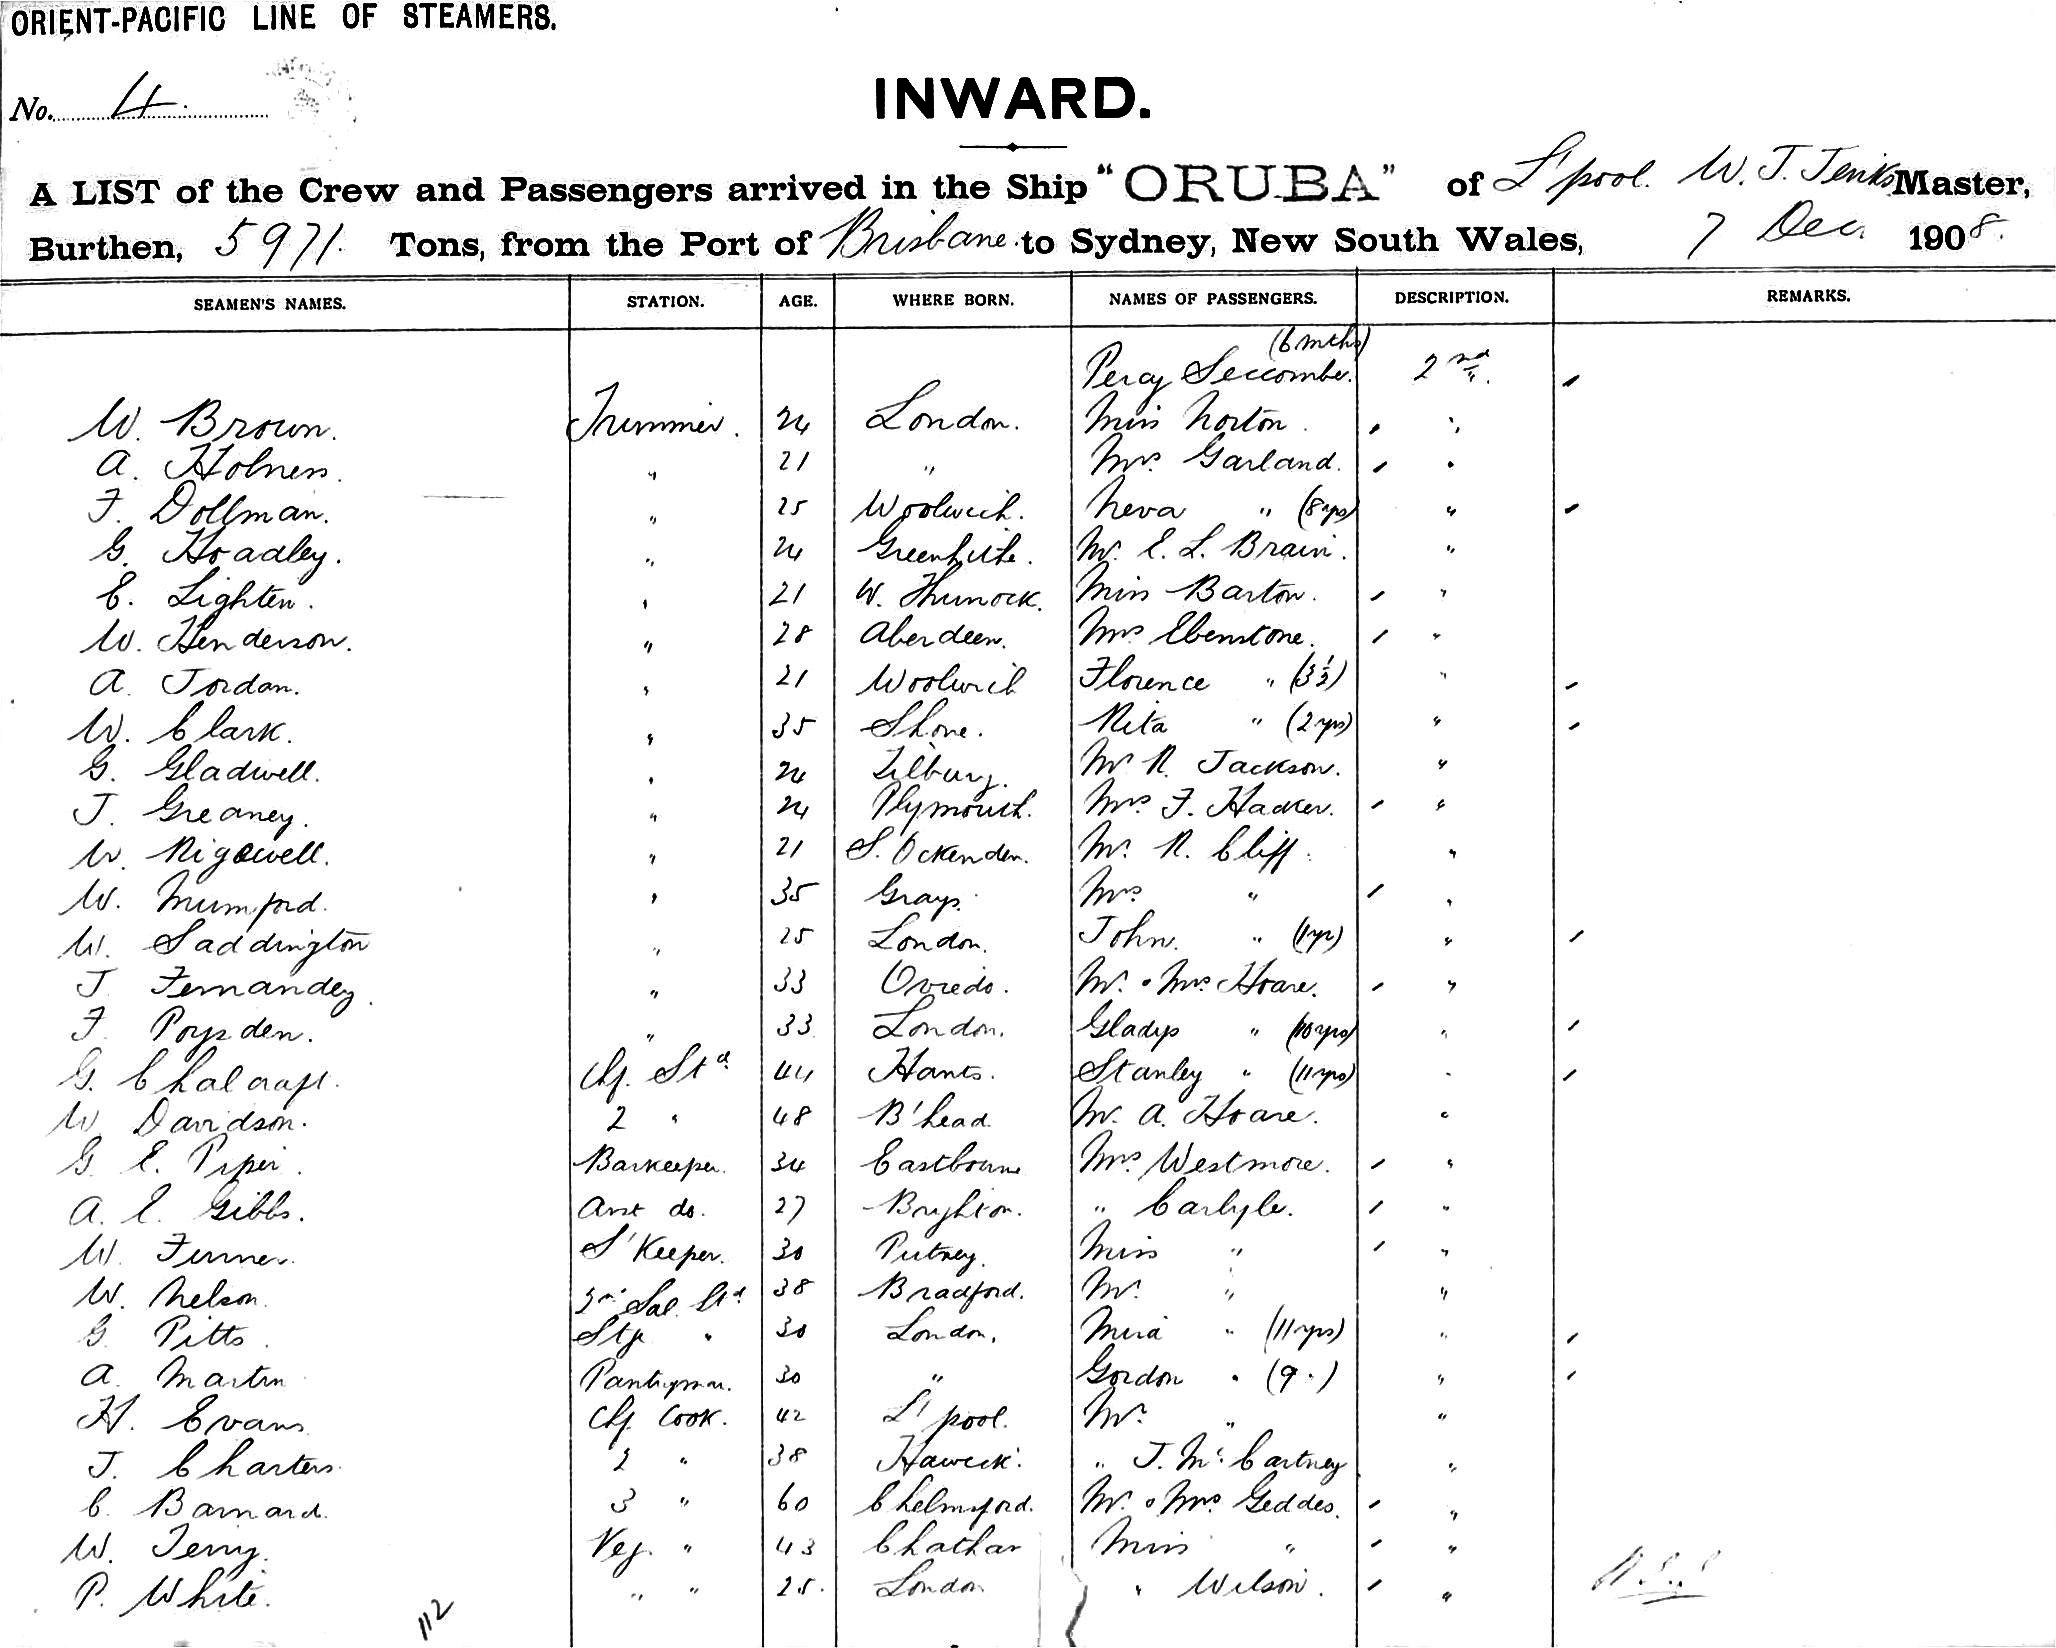 ORIENT-PACIFIC LINE OF STEAMERS.
No. 4.
INWARD.
A LIST of the Crew and Passengers arrived in the Ship "ORUBA" of L'pool. W. J. Jenks Master,
Burthen, 5971. Tons, from the Port of Brisbane to Sydney, New South Wales, 7 Dec. 1908.
SEAMEN'S NAMES. STATION. AGE. WHERE BORN. NAMES OF PASSENGERS. DESCRIPTION. REMARKS.
(6 mths)
Percy Seccombe. 2nd
W. Brown. Trimmer. 24 London. Miss Norton. "
A. Holness. " 21 " Mrs. Garland. "
F. Dollman. " 25 Woolwich. Neva " (8 yrs) "
G. Hoadley. " 24 Greenhithe. Mr. E. L. Brain. "
E. Lighten. " 21 W. Thurrock. Miss Barton. "
W. Henderson. " 28 Aberdeen. Mrs Ebenstone. "
A. Jordan. " 21 Woolwich Florence " (3½) "
W. Clark. " 35 Shorne. Rita " (2 yrs) "
G. Gladwell. " 24 Tilbury. Mr R. Jackson. "
J. Greaney. " 24 Plymouth. Mrs. F. Hacker. "
W. Ridgwell. " 21 S. Ockenden. Mr. R. Cliff. "
W. Mumford. " 35 Grays. Mrs " "
W. Saddington " 25 London. John. " (1 yr) "
J. Fernandez. " 33 Oviedo. Mr. & Mrs Hoare. "
F. Poysden. " 33 London. Gladys " (10 yrs) "
G. Chalcraft. Chf. Std. 44 Hants. Stanley " (11 yrs) "
W Davidson. 2 " 48 B'head. Mr. A. Hoare. "
G. E. Piper. Barkeeper. 34 Eastbourne Mrs. Westmore. "
A. E. Gibbs. Asst do. 27 Brighton. " Carlyle. "
W. Finner. S'Keeper. 30 Putney. Miss " "
W. Nelson. Sal. Std 38 Bradford. Mr. " "
G. Pitts. Stge " 30 London. " (11 yrs) "
A. Martin Pantryman. 30 " Gordon " (9 ") "
H. Evans Chf. Cook. 42 L'pool. Mr. " "
J. Charters. 2 " 38 Hawick. " J. McCartney "
C. Barnard. 3 " 60 Chelmsford. Mr. & Mrs. Geddes. "
W. Terry. Veg. " 43 Chatham Miss " "
P. White. " " 25. London " Wilson. "
112